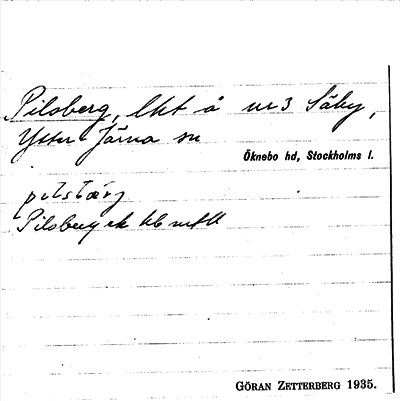 Pilsberg, lht å nr 3 Säby,
Ytter Järna sn
Öknebo hd, Stockholms l.
pılsbærj
Pilsberg ek
GÖRAN ZETTERBERG 1935.